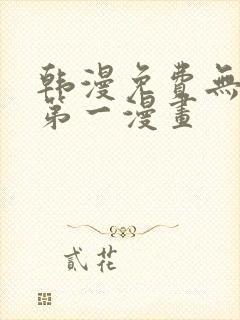 韩漫免費無
第一漫畫
貳花